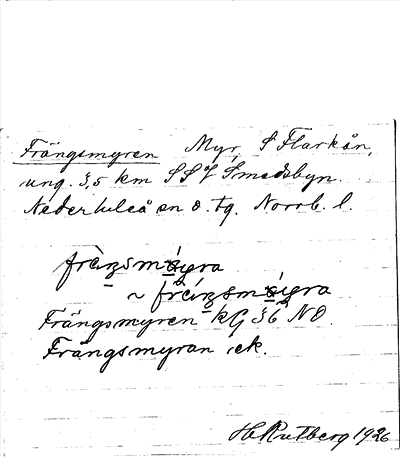 Frängsmyren Myr, S Flarkån,
ung. 3,5 km SSV Smedsbyn.
Nederluleå sn o. tg. Norrb. l.
~
Frängsmyren kG 36 NO
Frängsmyran ek.
H Rutberg 1926